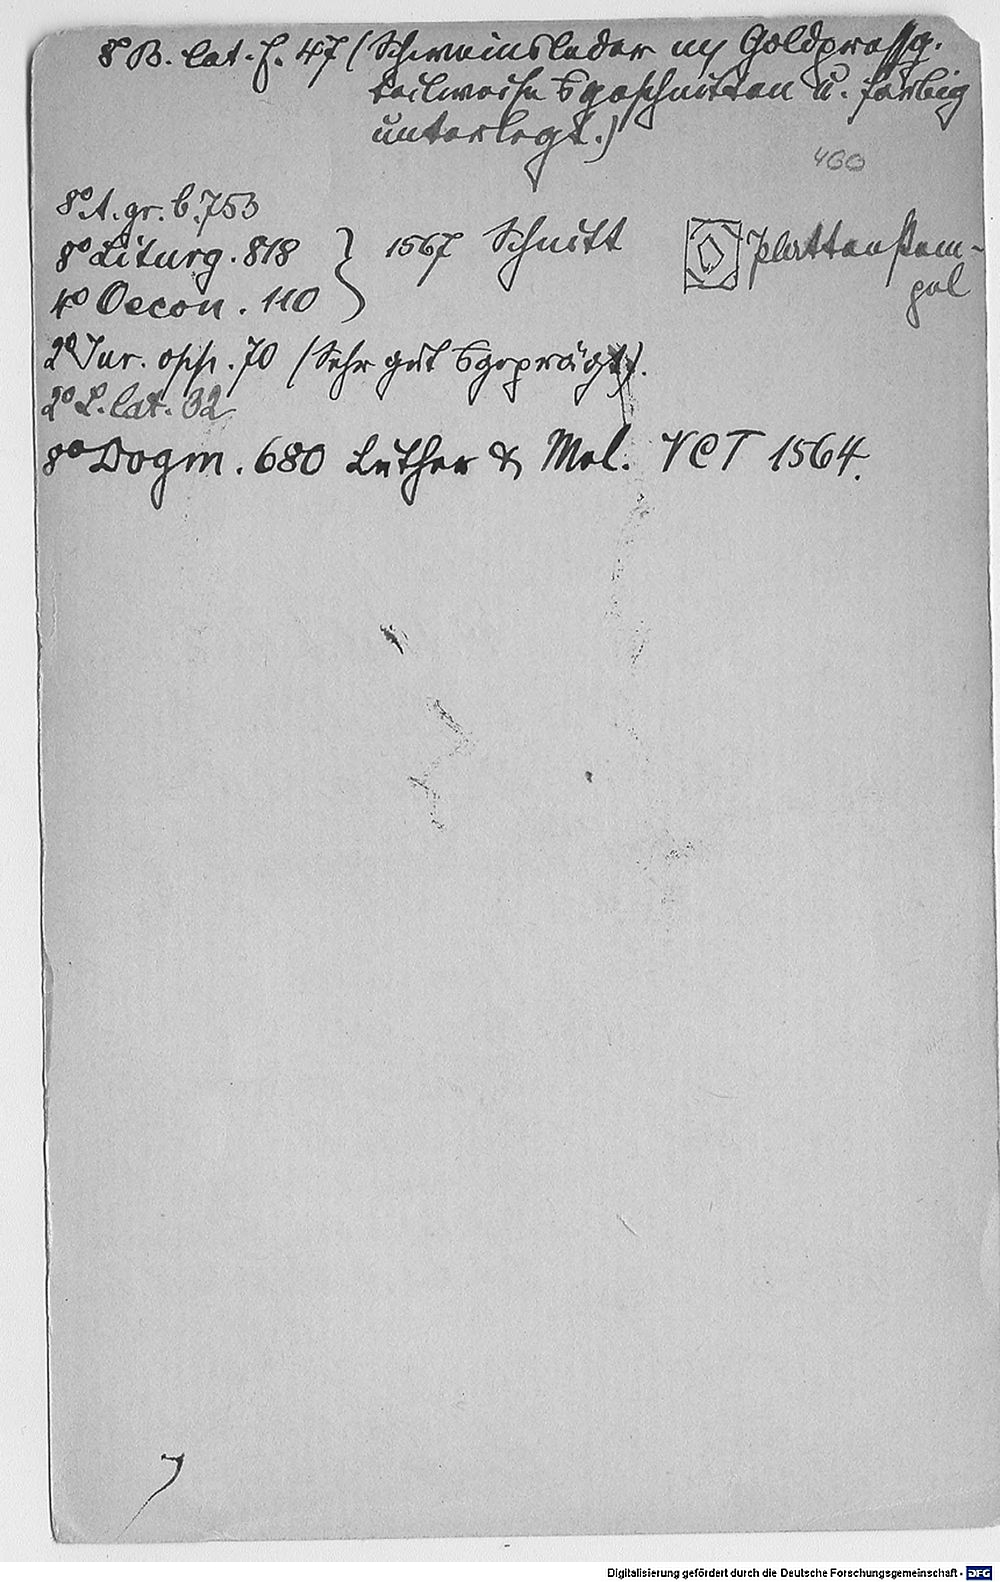 8° B. lat. f. 47 (Schweinsleder m Goldpressg.
teilweise ausgeschnitten u. farbig
unterlegt.)
400
8° A. gr. b. 753
8° Liturg. 818 } 1567 Schnitt
Plattenstem-
pel
4° Oecon. 110
2° Jur. opp. 70 (Sehr gut ausgeprägt).
2° L. lat. 32
8° Dogm. 680 Luther & Mel. VCT 1564.
Digitalisierung gefördert durch die Deutsche Forschungsgemeinschaft - DFG